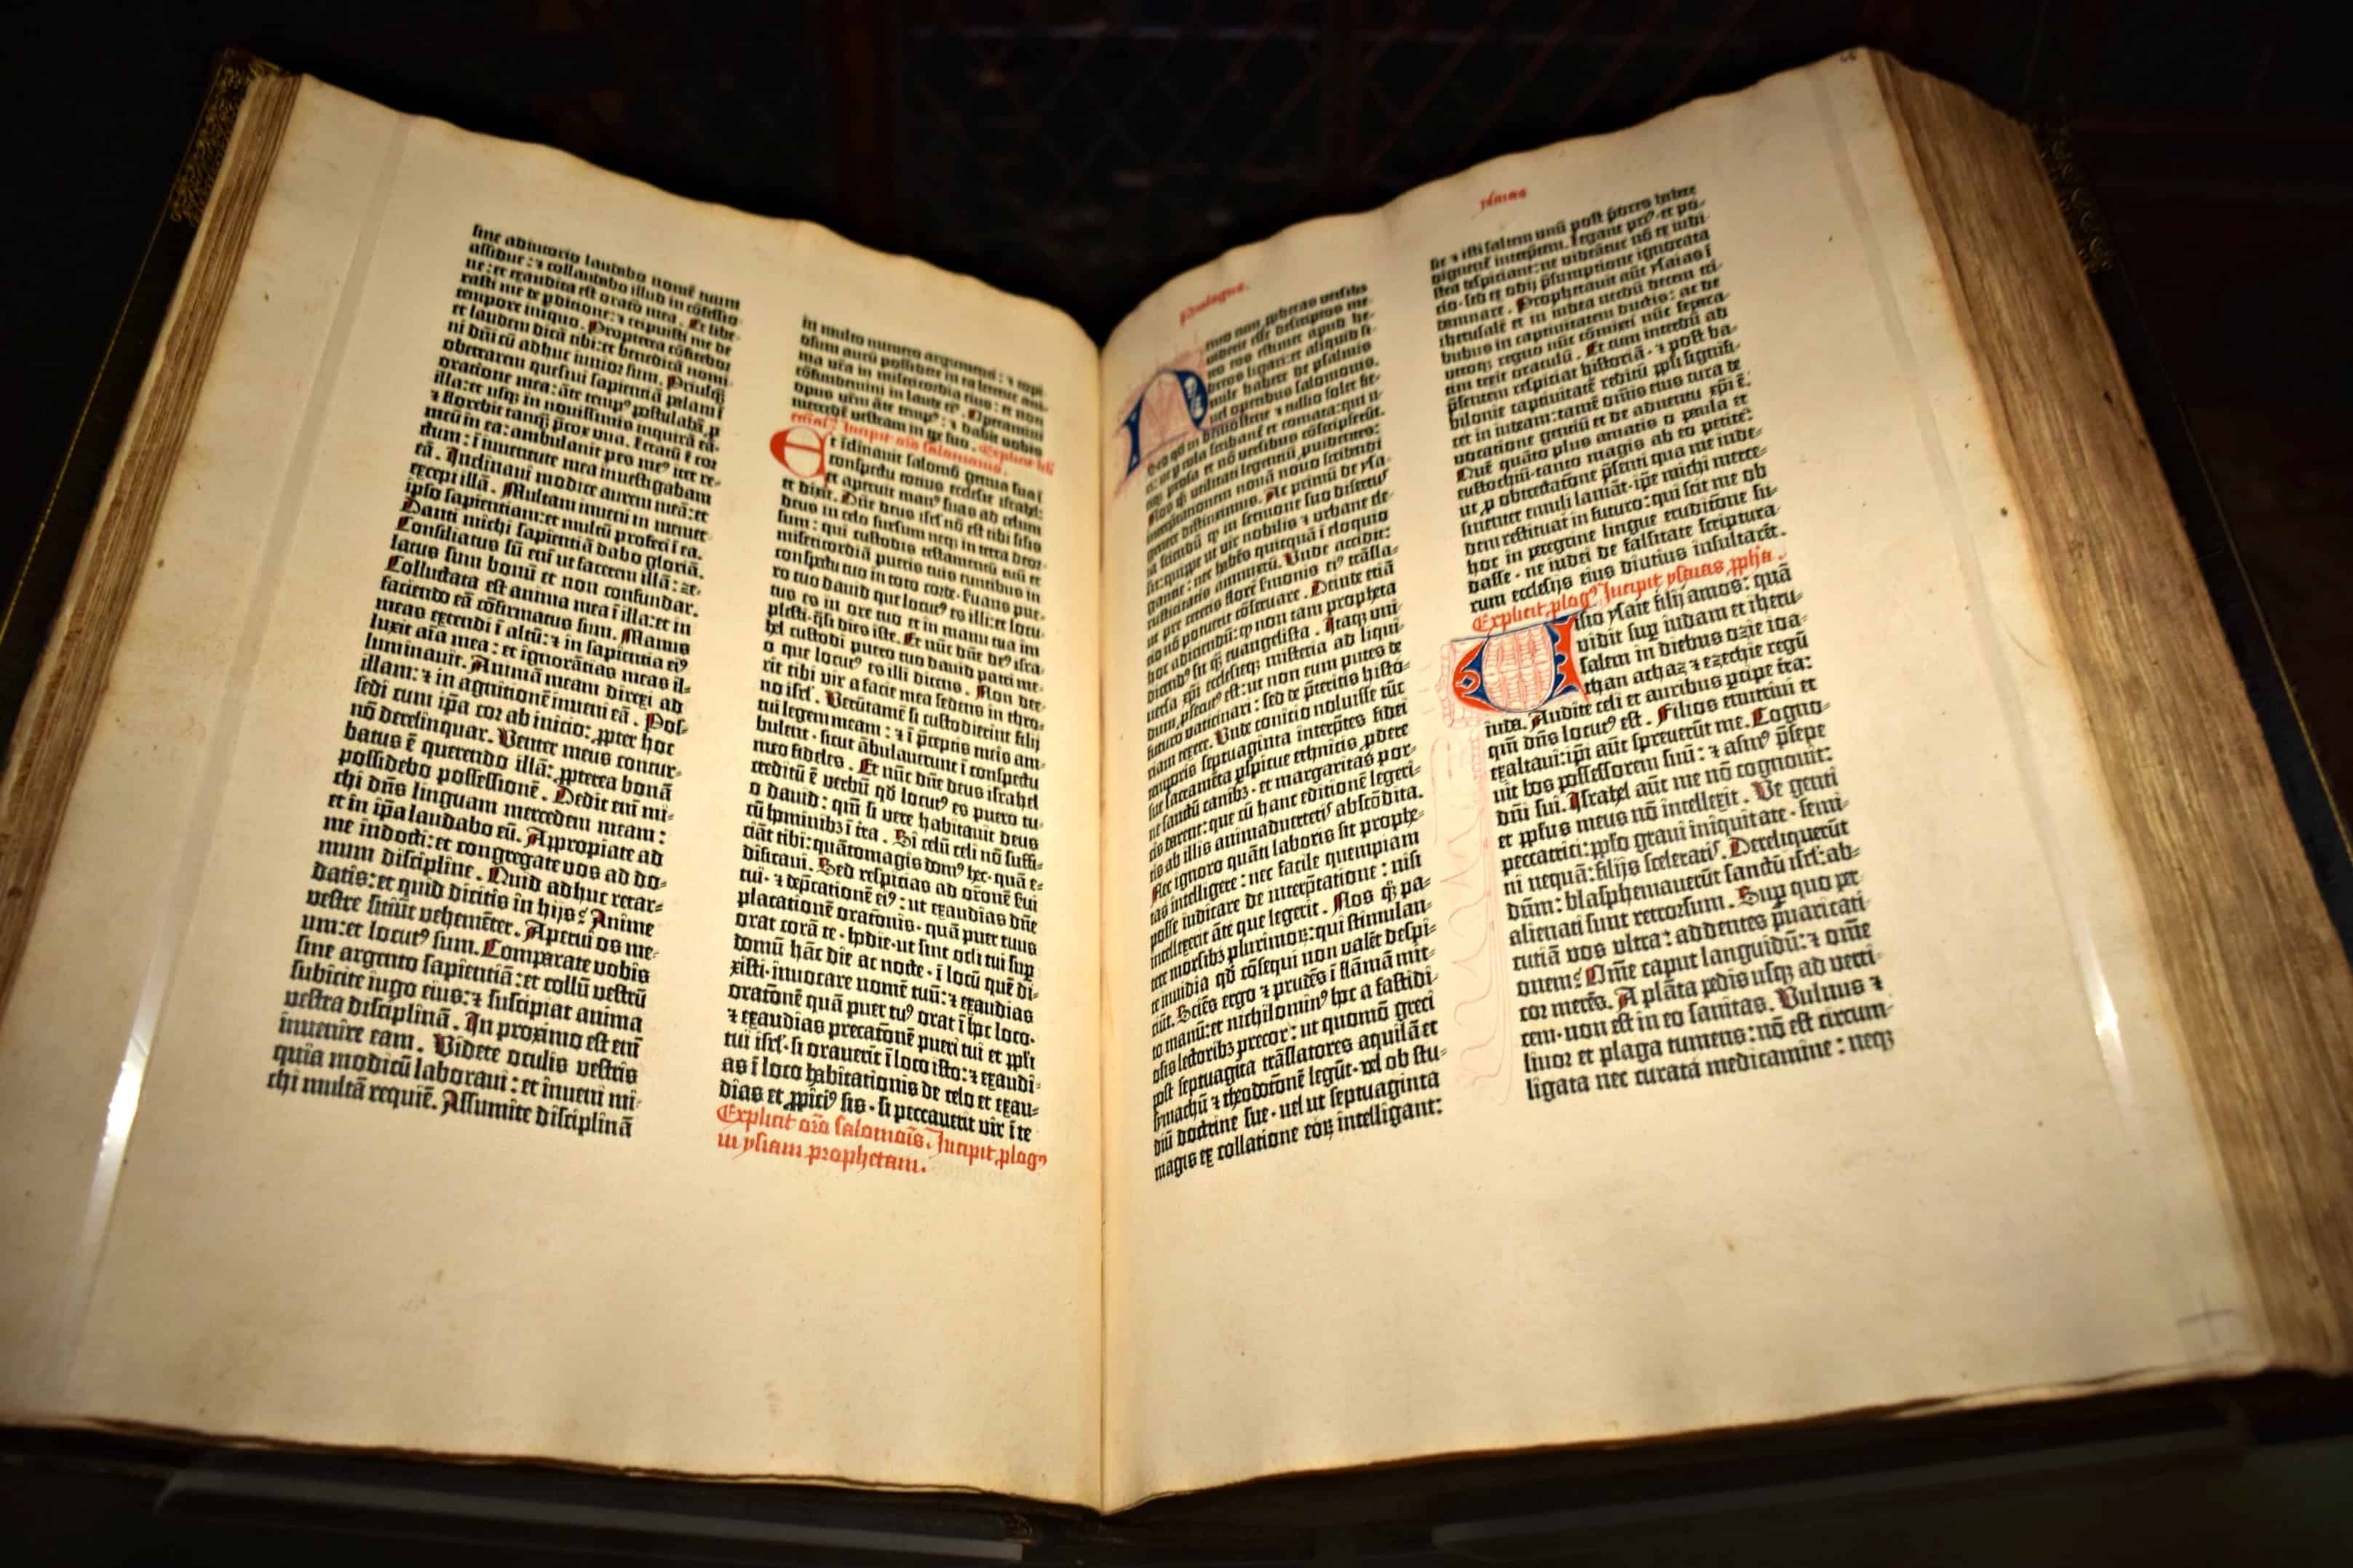 sine adiutorio laudabo nomē tuum
assidue: ⁊ collaudabo illud in cōfessio
ne: et exaudita est oratō mea. Et libe-
rasti me de pditione: ⁊ eripuisti me de
tempore iniquo. Propterea cōfitebor
et laudem dicā tibi: et benedicā nomi
ni dñi cū adhuc iunior sum. Priusq̄
oberrarem quesiui sapientiā palam ī
oratione mea: āte templ postulabā p
illa: et usq; in nouissimis inquirā eā.
⁊ florebit tanq̄ p̄cox vua. Letatū ē cor
meū in ea: ambulauit pes meꝰ iter re-
ctum: ī iuuentute mea inuestigabam
eā. Inclinaui modice aurem meā: et
excepi illā. Multam inueni in memet
ipso sapientiam: et multū profeci ī ea.
Danti michi sapientiā dabo gloriā.
Consiliatus sū enī ut facerem illā: ze-
latus sum bonū et non confundar.
Colluctata est anima mea ī illa: et in
faciendo eā cōfirmatus sum. Manus
meas extendi ī altū: ⁊ in sapientia eiꝰ
luxit aīa mea: et ignorātias meas il-
luminauit. Animā meam direxi ad
illam: ⁊ in agnitionē inueni eā. Pos-
sedi cum ip̄a cor ab inicio: ꝓpter hoc
nō derelinquar. Venter meus contur-
batus ē querendo illā: ꝓpterea bonā
possidebo possessionē. Dedit enī mi-
chi dñs linguam mercedem meam:
et in ip̄a laudabo eū. Appropiate ad
me indocti: et congregate vos ad do-
mum discipline. Quid adhuc retar-
datis: et quid dicitis in hijs? Anime
vestre sitiūt vehemēter. Aperui os me-
um: et locutꝰ sum. Comparate vobis
sine argento sapientiā: et collū vestrū
subicite iugo eius: ⁊ suscipiat anima
vestra disciplinā. In proximo est enī
inuenire eam. Videte oculis vestris
quia modicū laboraui: et inueni mi-
chi multā requiē. Assumite disciplinā
in multo numero argumenti: ⁊ copi-
osum aurū possidete in ea letetur ani-
ma vr̄a in misericordia eius: et non
cōfundemini in laude eiꝰ. Operamini
opus vr̄m āte tempꝰ: ⁊ dabit vobis
mercedē vestram in tpe suo. Explicit
Incipit orō salomonis.
Et īclinauit salomō genua sua ī
conspectu totius ecclesie israhel:
et aperuit manꝰ suas ad celum
et dixit. Dn̄e deus isrl nō est tibi silis
deus in celo sursum neq; in terra deor-
sum: qui custodis testamentū tuū et
misericordiā pueris tuis euntibus in
conspectu tuo in toto corde. Euans pue-
ro tuo dauid que locutꝰ es illi: et locu-
tus es in ore tuo et in manu tua im
plesti. q̄si dies iste. Et nūc dn̄e deꝰ isra-
hel custodi puero tuo dauid patri me-
o que locutꝰ es illi dicens. Non defi-
ciet tibi vir a facie mea sedens in thro-
no isrl. Verūtamē si custodierint filij
tui legem meam: ⁊ ī p̄ceptis meis am-
bulent. sicut ābulauerunt ī conspectu
meo fideles. Et nūc dn̄e deus israhel
creditū ē verbū qd̄ locutꝰ es puero tu-
o dauid: qm̄ si vere habitauit deus
cū hominibꝫ ī t̄ra. Si celū celi nō suffi-
ciāt tibi: quātomagis domꝰ hec. quā e-
dificaui. Sed respicias ad or̄onē serui
tui. ⁊ dep̄cationē eiꝰ: ut exaudias dn̄e
placationē orationis. quā puer tuus
orat corā te. hodie. ut sint oculi tui sup
domū hāc die ac nocte. ī locū quē di-
xisti. inuocare nomē tuū: ⁊ exaudias
oratōnē quā puer tuꝰ orat ī hoc loco.
⁊ exaudias precatōnē pueri tui et ppl̄i
tui isrl. si orauerīt ī loco isto: ⁊ exaudi-
as ī loco habitationis de celo et exau-
dias et ꝓpiciꝰ sis. si peccauerit vir ī te
Explicit orō salomōis. Incipit plogꝰ
in ysaiam prophetam.
Prologus.
Nemo cum prophetas versibus
viderit esse descriptos me-
tro eos estimet apud he-
breos ligari: et aliquid si-
mile habere de psalmis
vel operibus salomonis.
Sed qd̄ in demostene ⁊ tullio solet fie-
ri: ut p cola scribant̄ et comata: qui u-
tiq; prosa et nō versibus cōscripserūt.
Nos q̄q; utilitati legentiū ꝓuidentes:
interpretationem nouā nouo scribendi
genere distinximus. Ac primū de ysa-
ia sciendū ꝙ in sermone suo disertus
sit: quippe ut vir nobilis ⁊ urbane ele-
gantie: nec habēs quicquā ī eloquio
rusticitatis ammixtū. Unde accidit:
ut pre ceteris florē s̄monis eiꝰ trāsla-
tio nō potuerit cōseruare. Deinde etiā
hoc adiciendū: ꝙ non tam propheta
dicendꝰ sit q̄ euangelista. Itaq; uni-
uersa xp̄i ecclesieq; misteria ad liqui-
dum psecutꝰ est: ut non eum putes de
futuro vaticinari: sed de p̄teritis histo-
riam texere. Unde conicio noluisse tūc
temporis septuaginta interp̄tes fidei
sue sacramēta pspicue ethnicis ꝓdere
ne sanctū canibꝫ. et margaritas por-
cis darent: que cū hanc editionē legeri-
tis ab illis animaduerteṫis abscōdita.
Nec ignoro quāti laboris sit prophe-
tas intelligere: nec facile quempiam
posse iudicare de interp̄tatione: nisi
intellexerit āte que legerit. Nos q̄q; pa-
tere morsibꝫ plurimoꝝ: qui stimulan-
te inuidia qd̄ cōsequi non valēt despi-
ciūt. Sciēs ergo ⁊ prudēs ī flāmā mit-
to manū: et nichilominꝰ hoc a fastidi-
osis lectoribꝫ precor: ut quomō greci
post septuagīta trāslatores aquilā et
symachū ⁊ theodotōnē legūt. vel ob stu-
diū doctrine sue. uel ut septuaginta
magis ex collatione eoꝝ intelligant:
ysaias
sic ⁊ isti saltem unū post p̄ores habere
dignent̄ interp̄tem. Legant priꝰ. et po-
stea despiciant: ne videātur nō ex iudi-
cio. sed ex odij p̄sumptione ignorata
damnare. Prophetauit aūt ysaias ī
iherusalē et in iudea necdū decem tri-
bubus in captiuitatem ductis: ac de
utroq; regno nūc cōmixti nūc separa-
tim texit oraculū. Et cum interdū ad
p̄sentem respiciat historiā. ⁊ post ba-
bilonie captiuitatē reditū ppl̄i signifi-
cet in iudeam: tamē om̄is eius cura de
vocatione gentiū et de aduentu xp̄i ē.
Quē quāto plus amatis o paula et
eustochiū. tanto magis ab eo petite:
ut p obtrectatōne p̄senti qua me inde-
sinenter emuli laniāt. ip̄e michi merce-
dem restituat in futuro: qui scit me ob
hoc in peregrine lingue eruditōne su-
dasse. ne iudei de falsitate scriptura-
rum ecclesijs eius diutius insultarēt.
Explicit plogꝰ Incipit ysaias ꝓph̄a.
Visio ysaie filij amos: quā
vidit sup iudam et iheru-
salem in diebus ozie ioa-
than achaz ⁊ ezechie regū
iuda. Audite celi et auribus pcipe t̄ra:
qm̄ dn̄s locutꝰ est. Filios enutriui et
exaltaui: ip̄i aūt spreuerūt me. Cogno-
uit bos possessorem suū: ⁊ asinꝰ p̄sepe
dn̄i sui. Israhel aūt me nō cognouit:
et pp̄lus meus nō intellexit. Ve genti
peccatrici: pp̄lo graui iniquitate. semi-
ni nequā: filijs sceleratis. Dereliquerūt
dn̄m: blasphemauerūt sanctū isrl: ab-
alienati sunt retrorsum. Sup quo pr-
cutiā vos ultra: addentes p̄uaricati-
onem? Om̄e caput languidū: ⁊ om̄e
cor merēs. A plāta pedis usq; ad verti-
cem. non est in eo sanitas. Vulnus ⁊
liuor et plaga tumens: nō est circum-
ligata nec curata medicamine: neq;